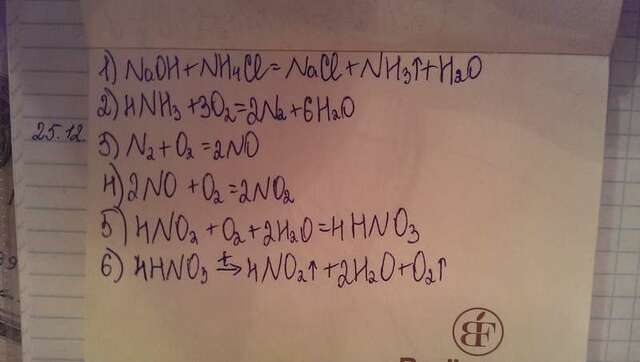 1) NaOH + NH4Cl = NaCl + NH3↑ + H2O
2) 4NH3 + 3O2 = 2N2 + 6H2O
25.12.
3) N2 + O2 = 2NO
4) 2NO + O2 = 2NO2
5) 4NO2 + O2 + 2H2O = 4HNO3
6) 4HNO3 t→ 4NO2↑ + 2H2O + O2↑
BF